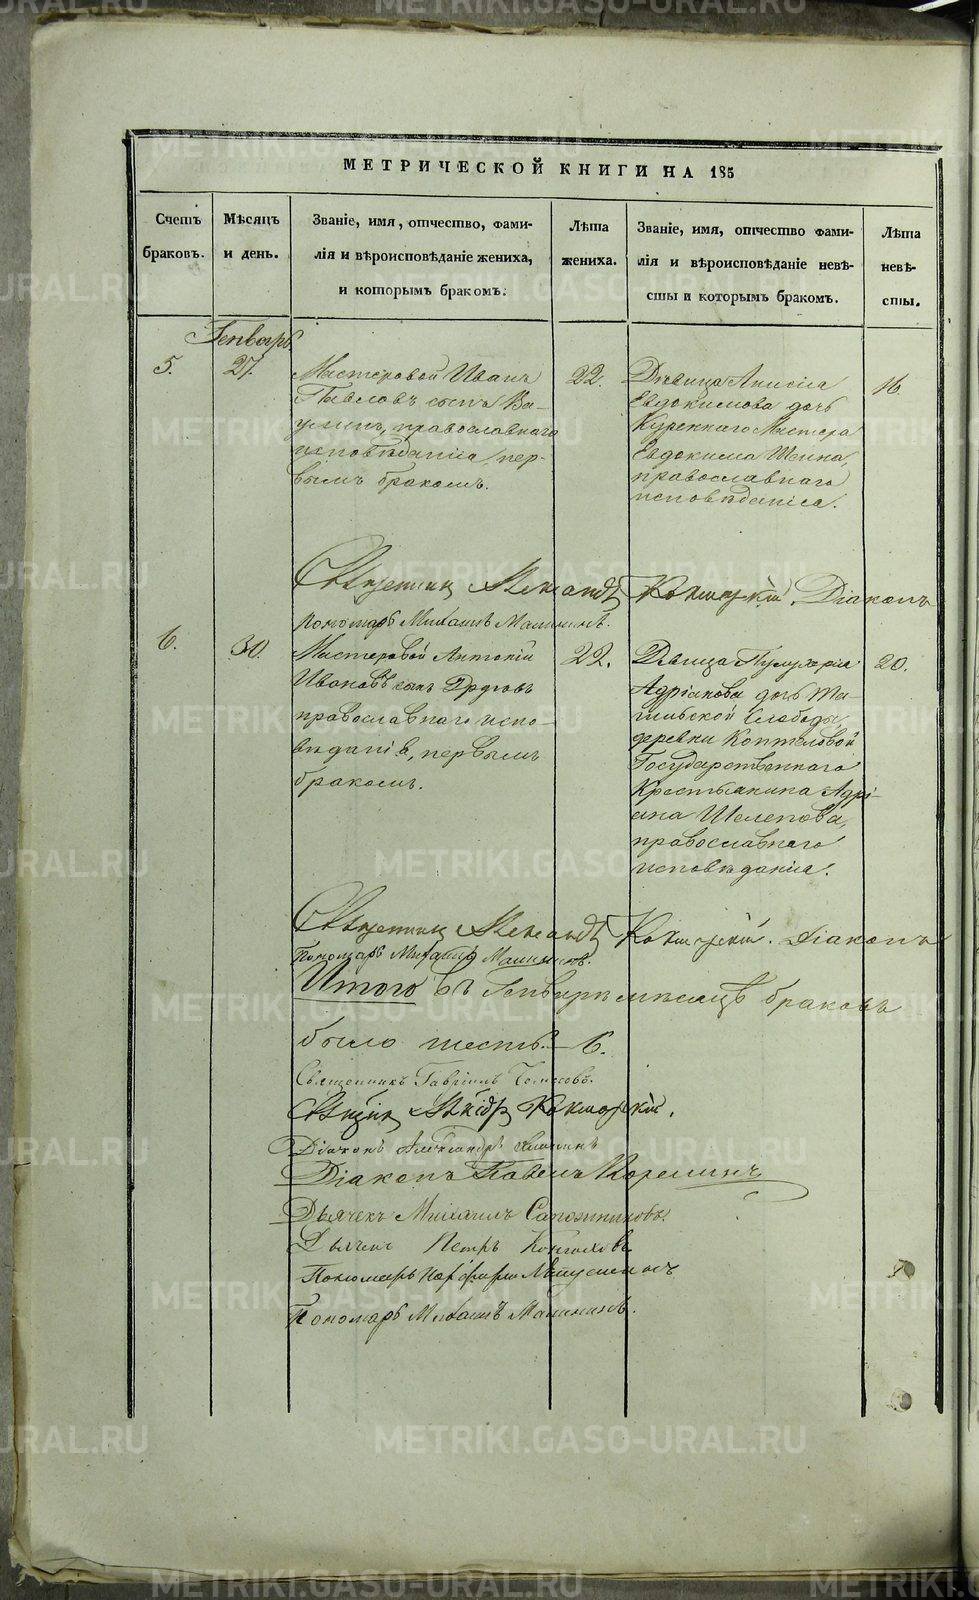 МЕТРИЧЕСКОЙ КНИГИ НА 185
Счетъ браковъ.
Мѣсяцъ и день.
Званіе, имя, отчество, фами-
лія и вѣроисповѣданіе жениха,
и которымъ бракомъ.
Лѣта
жениха.
Званіе, имя, отчество фами-
лія и вѣроисповѣданіе невѣ-
сты и которымъ бракомъ.
Лѣта
невѣ-
сты.
Генварь
5. 27.
Мастеровой Иванъ
Павловъ сынъ Ва-
православнаго
исповѣданія, пер-
вымъ бракомъ.
22.
Дѣвица Анисія
Евдокимова дочь
Куреннаго Мастера
Евдокима Шеина,
православнаго
исповѣданія.
16.
Священникъ Александръ Діаконъ
Пономарь Михаилъ Малининъ.
6. 30.
Мастеровой Антоній
Ивановъ сынъ Друговъ
православнаго испо-
вѣданія, первымъ
бракомъ.
22.
Дѣвица Пулхерія
Адріанова дочь Та-
гильской Слободы,
деревни Коптеловой
Государственнаго
Крестьянина Адрі-
ана Шелепова,
православнаго
исповѣданія.
20.
Священникъ Александръ Діаконъ
Пономарь Михаилъ Малининъ.
Итого въ Генварѣ мѣсяцѣ браковъ
было шесть. – 6.
Священникъ Гавріилъ
Діаконъ Александръ
Діаконъ Павелъ Корелинъ
Дьячекъ Михаилъ Сапожниковъ.
Дьячекъ Петръ
Пономарь Порфирій
Пономарь Михаилъ Малининъ.
METRIKI.GASO-URAL.RU